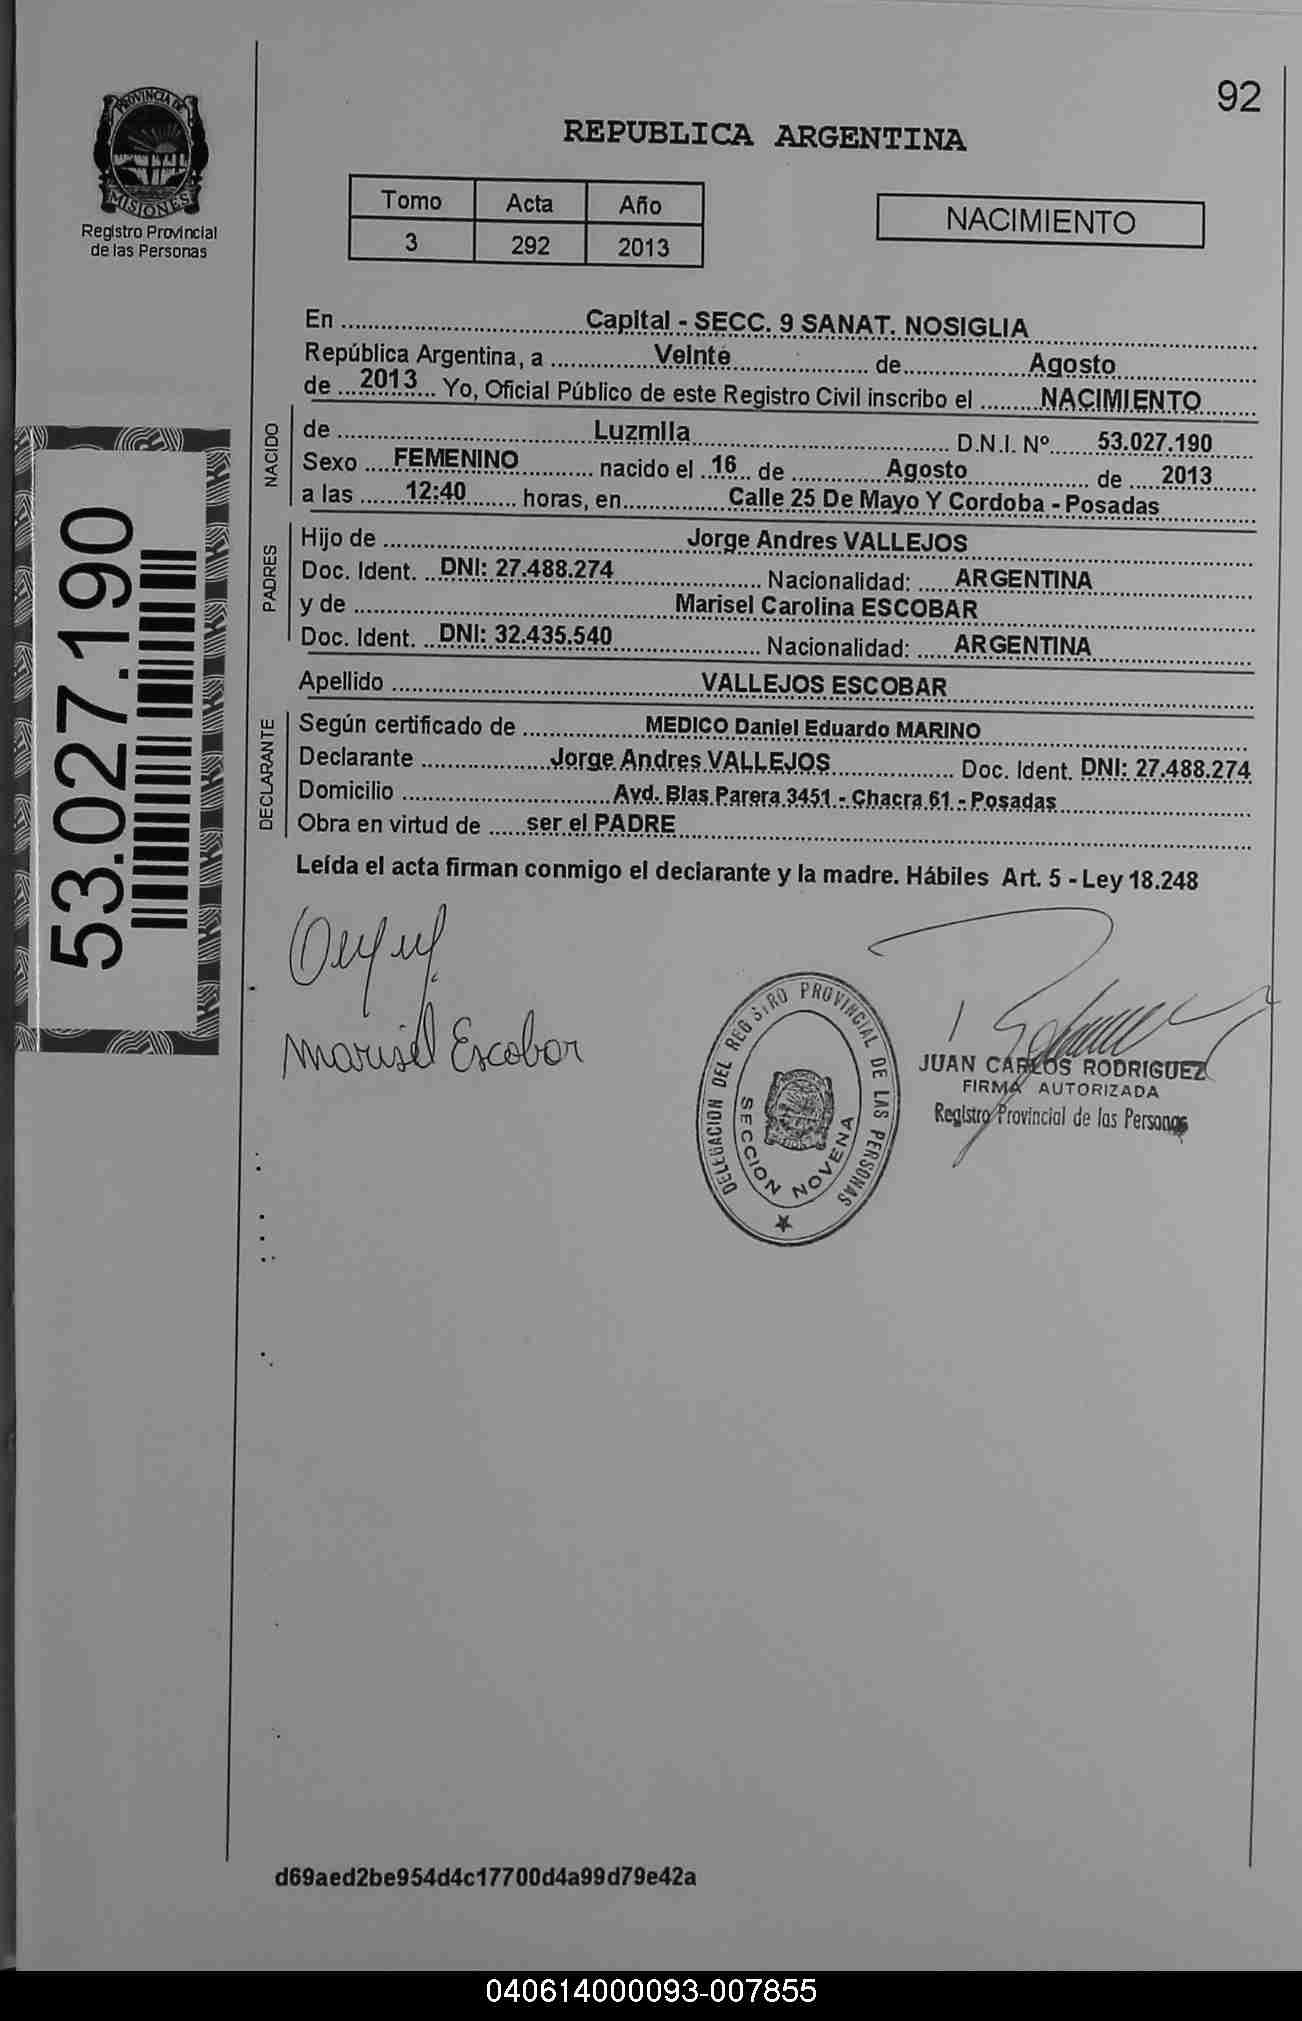 92
PROVINCIA DE
MISIONES
Registro Provincial
de las Personas
REPUBLICA ARGENTINA
Tomo Acta Año
3 292 2013
NACIMIENTO
En Capital - SECC. 9 SANAT. NOSIGLIA
República Argentina, a Veinte de Agosto
de 2013 Yo, Oficial Público de este Registro Civil inscribo el NACIMIENTO
NACIDO
de Luzmila D.N.I. Nº 53.027.190
Sexo FEMENINO nacido el 16 de Agosto de 2013
a las 12:40 horas, en Calle 25 De Mayo Y Cordoba - Posadas
PADRES
Hijo de Jorge Andres VALLEJOS
Doc. Ident. DNI: 27.488.274 Nacionalidad: ARGENTINA
y de Marisel Carolina ESCOBAR
Doc. Ident. DNI: 32.435.540 Nacionalidad: ARGENTINA
Apellido VALLEJOS ESCOBAR
DECLARANTE
Según certificado de MEDICO Daniel Eduardo MARINO
Declarante Jorge Andres VALLEJOS Doc. Ident. DNI: 27.488.274
Domicilio Avd. Blas Parera 3451 - Chacra 61 - Posadas
Obra en virtud de ser el PADRE
Leída el acta firman conmigo el declarante y la madre. Hábiles Art. 5 - Ley 18.248
53.027.190
Marisel Escobar
DELEGACION DEL REGISTRO PROVINCIAL DE LAS PERSONAS
SECCION NOVENA
JUAN CARLOS RODRIGUEZ
FIRMA AUTORIZADA
Registro Provincial de las Personas
d69aed2be954d4c17700d4a99d79e42a
040614000093-007855